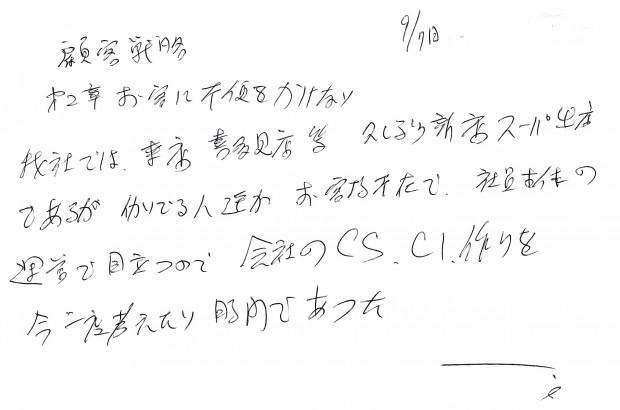 9/7日
顧客戦略
第2章 お客に不便をかけない
我社では、東店 喜多見店等 久しぶり新店スーパー出店
であるが 働いてる人達が お客様不在で、社員主体の
運営で目立つので 会社のCS、CI、作りを
今一度考えたい 内であった